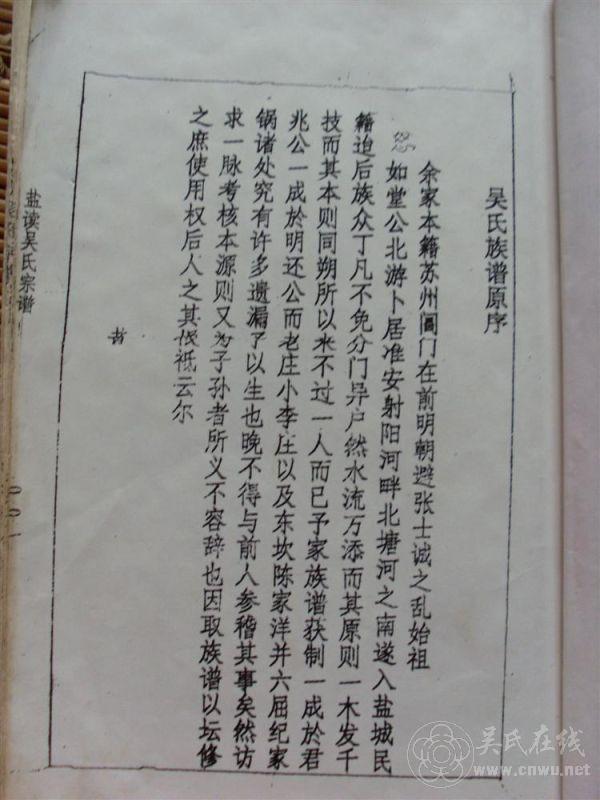 吴氏族谱原序
余家本籍苏州阊门在前明朝避张士诚之乱始祖
如堂公北游卜居淮安射阳河畔北塘河之南遂入盐城民
籍迨后族众丁凡不免分门异户然水流万添而其原则一木发千
技而其本则同朔所以来不过一人而已予家族谱获制一成於君
兆公一成於明还公而老庄小李庄以及东坎陈家洋并六届纪家
锅诸处究有许多遗漏了以生也晚不得与前人参稽其事矣然访
求一脉考核本源则又为子孙者所义不容辞也因取族谱以坛修
之庶使用权后人之其祗云尔
者
盐读吴氏宗谱
吴氏在线
www.cnwu.net